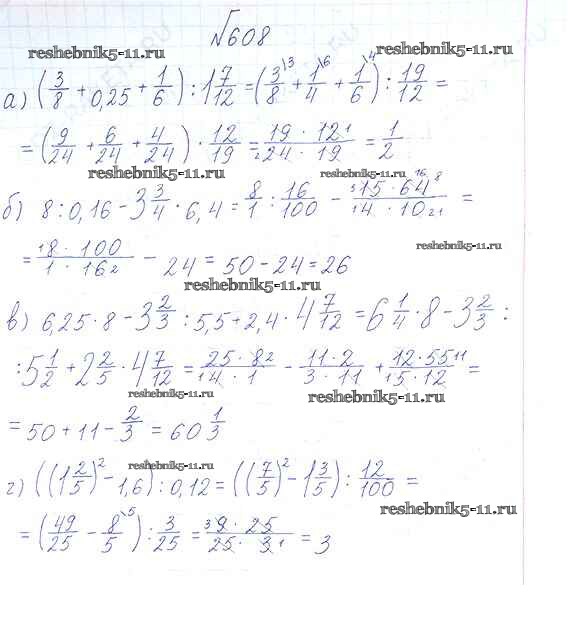 №608
reshebnik5-11.ru reshebnik5-11.ru
а) (3/8 + 0,25 + 1/6) : 1 7/12 = (3/8 \3 + 1/4 \6 + 1/6 \4) : 19/12 =
= (9/24 + 6/24 + 4/24) · 12/19 = 19 · 12 1 / 2 24 · 19 = 1/2
reshebnik5-11.ru reshebnik5-11.ru
б) 8 : 0,16 - 3 3/4 · 6,4 = 8/1 : 16/100 - 3 15 · 64 16 8 / 1 4 · 10 2 1 =
reshebnik5-11.ru
= 1 8 · 100 / 1 · 16 2 - 24 = 50 - 24 = 26
reshebnik5-11.ru
в) 6,25 · 8 - 3 2/3 : 5,5 + 2,4 · 4 7/12 = 6 1/4 · 8 - 3 2/3 :
: 5 1/2 + 2 2/5 · 4 7/12 = 25 · 8 2 / 1 4 · 1 - 11 · 2 / 3 · 11 + 12 · 55 11 / 1 5 · 12 =
reshebnik5-11.ru reshebnik5-11.ru
= 50 + 11 - 2/3 = 60 1/3
reshebnik5-11.ru
г) ((1 2/5)² - 1,6) : 0,12 = ((7/5)² - 1 3/5) : 12/100 =
reshebnik5-11.ru
= (49/25 - 8/5 \5) : 3/25 = 3 9 · 25 / 25 · 3 1 = 3